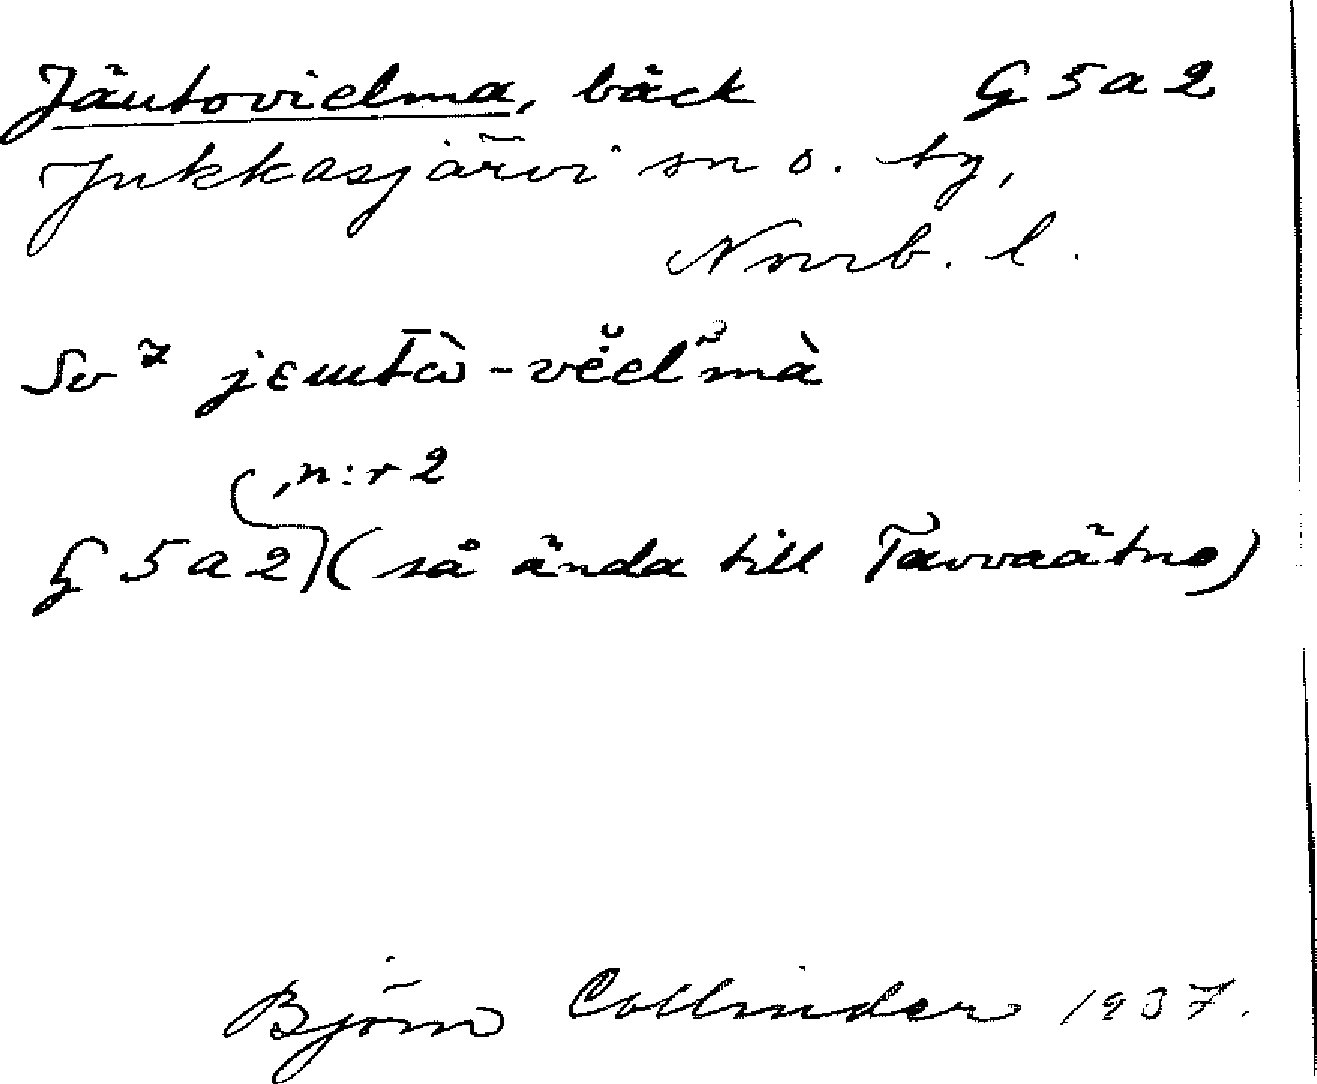 Jäutovielma, bäck G 5 a 2
Jukkasjärvi sn o. tg,
Norrb. l.
Sv 7 jɛɯtω̄̀-vĕ̇el̆mà
, n:r 2
G 5 a 2 (så ända till Tavvaätno)
Björn Collinder 1937.